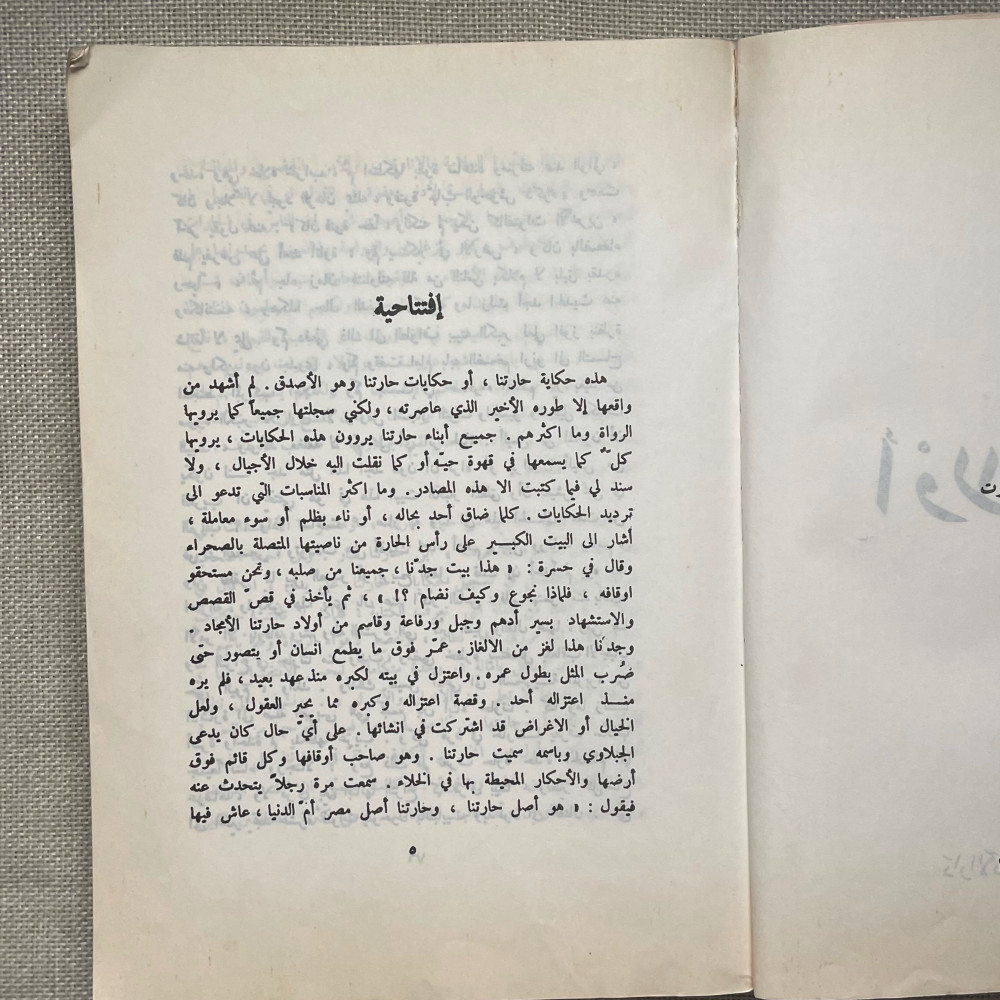 إفتتاحية
هذه حكاية حارتنا ، أو حكايات حارتنا وهو الأصدق . لم أشهد من
واقعها إلا طوره الأخير الذي عاصرته ، ولكني سجلتها جميعاً كما يرويها
الرواة وما اكثرهم . جميع أبناء حارتنا يروون هذه الحكايات ، يرويها
كلٌّ كما يسمعها في قهوة حيّه أو كما نقلت اليه خلال الأجيال ، ولا
سند لي فيما كتبت الا هذه المصادر . وما اكثر المناسبات التي تدعو الى
ترديد الحكايات . كلما ضاق أحد بحاله ، أو ناء بظلم أو سوء معاملة ،
أشار الى البيت الكبير على رأس الحارة من ناصيتها المتصلة بالصحراء
وقال في حسرة : « هذا بيت جدّنا ، جميعنا من صلبه ، ونحن مستحقو
اوقافه ، فلماذا نجوع وكيف نضام ؟! » ، ثم يأخذ في قصّ القصص
والاستشهاد بسير أدهم وجبل ورفاعة وقاسم من أولاد حارتنا الأمجاد .
وجدّنا هذا لغز من الالغاز . عمّر فوق ما يطمع انسان أو يتصور حتّى
ضُرب المثل بطول عمره . واعتزل في بيته لكبره منذ عهد بعيد ، فلم يره
منذ اعتزاله أحد . وقصة اعتزاله وكبره مما يحير العقول ، ولعل
الخيال أو الاغراض قد اشتركت في انشائها . على أيّ حال كان يدعى
الجبلاوي وباسمه سميت حارتنا . وهو صاحب أوقافها وكل قائم فوق
أرضها والأحكار المحيطة بها في الخلاء . سمعت مرة رجلاً يتحدث عنه
فيقول : « هو أصل حارتنا ، وحارتنا أصل مصر أمّ الدنيا ، عاش فيها
٥